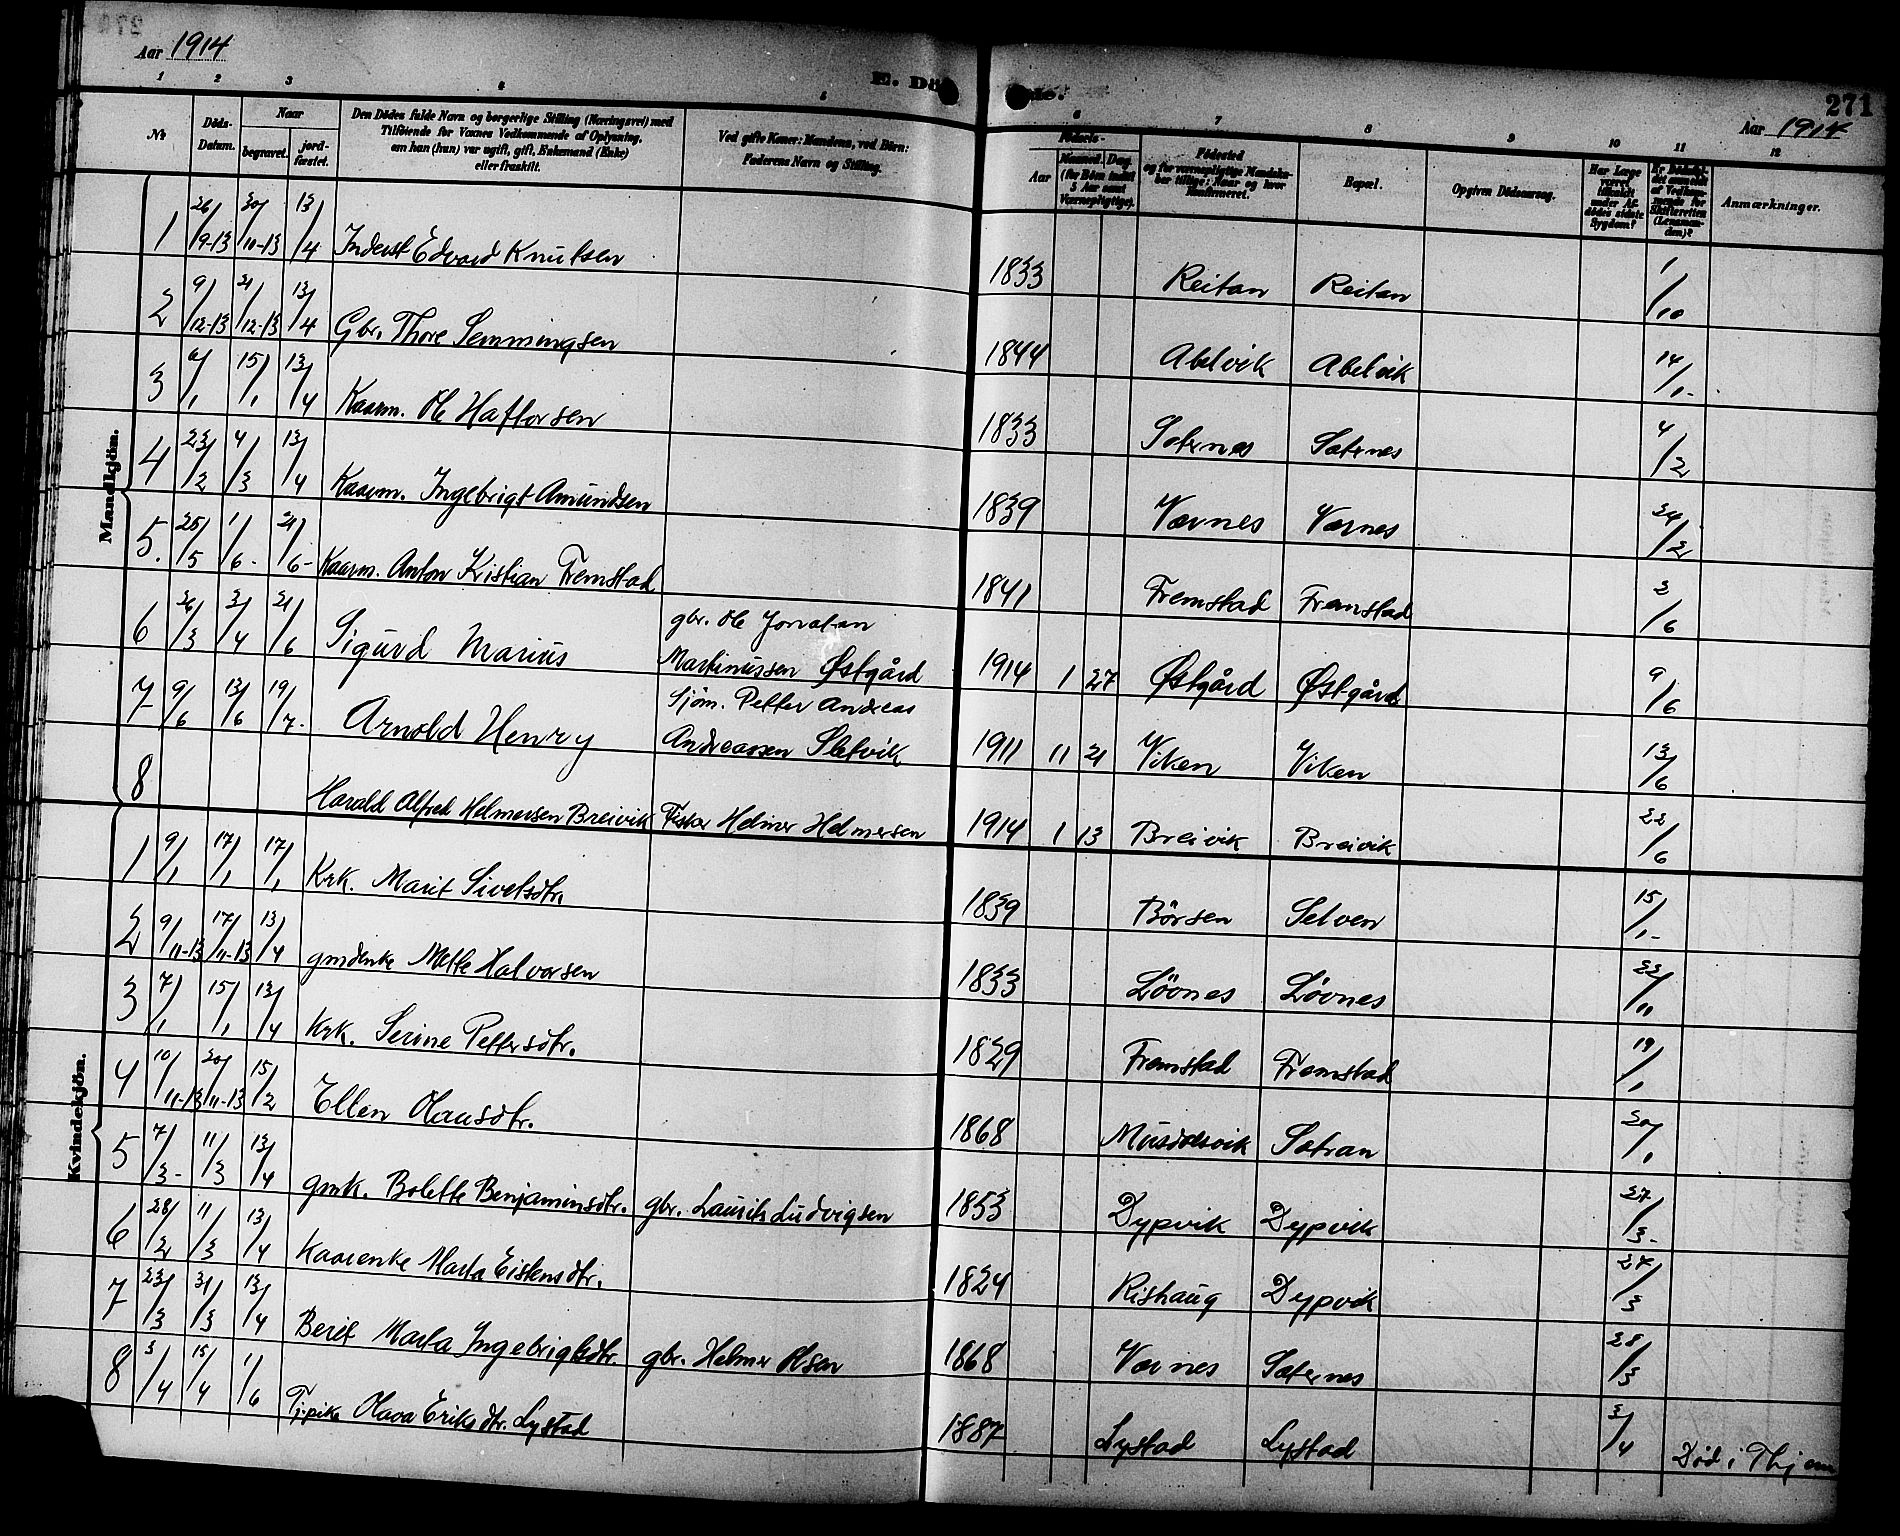 Aar 1914
E. Dö
de.
271
Aar 1914
1 2 3 4 5 6 7 8 9 10 11 12
No
Döds-Datum.
Naar
begravet.
jord-fæstet.
Den Dödes fulde Navn og borgerlige Stilling (Næringsvei) med
Tilföiende for Voxnes Vedkommende af Oplysning,
om han (hun) var ugift, gift, Enkemand (Enke)
eller fraskilt.
Ved gifte Koner: Mandens, ved Börn:
Faderens Navn og Stilling.
Födsels-
Aar
Maaned. Dag.
(for Börn indtil
5 Aar samt
Værnepligtige).
Födested
og for værnepligtige Mandskaber tillige: Naar og hvor
konfirmeret.
Bopæl.
Opgiven Dödsaarsag.
Har Læge
været
tilkaldt
under Afdödes sidste
Sygdom?
Er Dödsfaldet anmeldt
af Vedkommende for
Skifteretten
(Lensmanden)?
Anmærkninger.
Mandkjön.
1 26/9-13 30/11-13 13/4 Inderst Edvard Knutsen 1833 Reitan Reitan 1/10
2 9/12-13 21/12-13 13/4 Gbr. Thore Semmingsen 1844 Abelvik Abelvik 14/1.
3 6/1 15/1 13/4 Kaarm. Ole Haftorsen 1833 Sæternes Sæternes 4/2
4 23/2 4/3 13/4 Kaarm. Ingebrigt Amundsen 1839 Værnes Værnes 24/2
5. 25/5 1/6. 21/6- Kaarm. Anton Kristian Fremstad 1841 Fremstad Fremstad 2/6
6 26/3 3/4 21/6 Sigurd Marius gbr. Ole Jonatan
Martinussen Østgård 1914 1 27 Østgård Østgård 9/6
7 9/6 13/6 19/7. Arnold Henry Sjøm. Petter Andreas
Andreassen Sletvik 1911 11 21 Viken Viken 13/6
8 Harald Alfred Helmersen Breivik Fisker Helmer Helmersen 1914 1 13 Breivik Breivik 22/6
Kvindekjön.
1 9/1 17/1 17/1 Krk. Marit Sivertsdtr. 1839 Börsen Selven 15/1-
2 9/11-13 17/11-13 13/4 gmdenke Mette Halvorsen 1833 Lövnes Lövnes 22/11
3 7/1 15/1 13/4 Krk. Serine Pettersdtr. 1829 Fremstad Fremstad 19/1
4 10/11-13 20/11-13 15/2 Ellen Olausdtr. 1868 Satran 20/1
5 7/3- 11/3 13/4 gmk. Bolette Benjaminsdtr. gbr. Laurits Ludvigsen 1853 Dypvik Dypvik 27/3-
6 28/2 11/3 13/4 Kaarenke Marta Eistensdtr. 1824 Rishaug Dypvik 27/3
7 23/3 31/3 13/4 Berit Marta Ingebrigtsdtr gbr. Helmer Olsen 1868 Værnes Sæternes 28/3
8 3/4 15/4 1/6 Tj.pike Olava Eriksdtr. Lystad 1887 Lystad Lystad 3/4 Død i Thjem